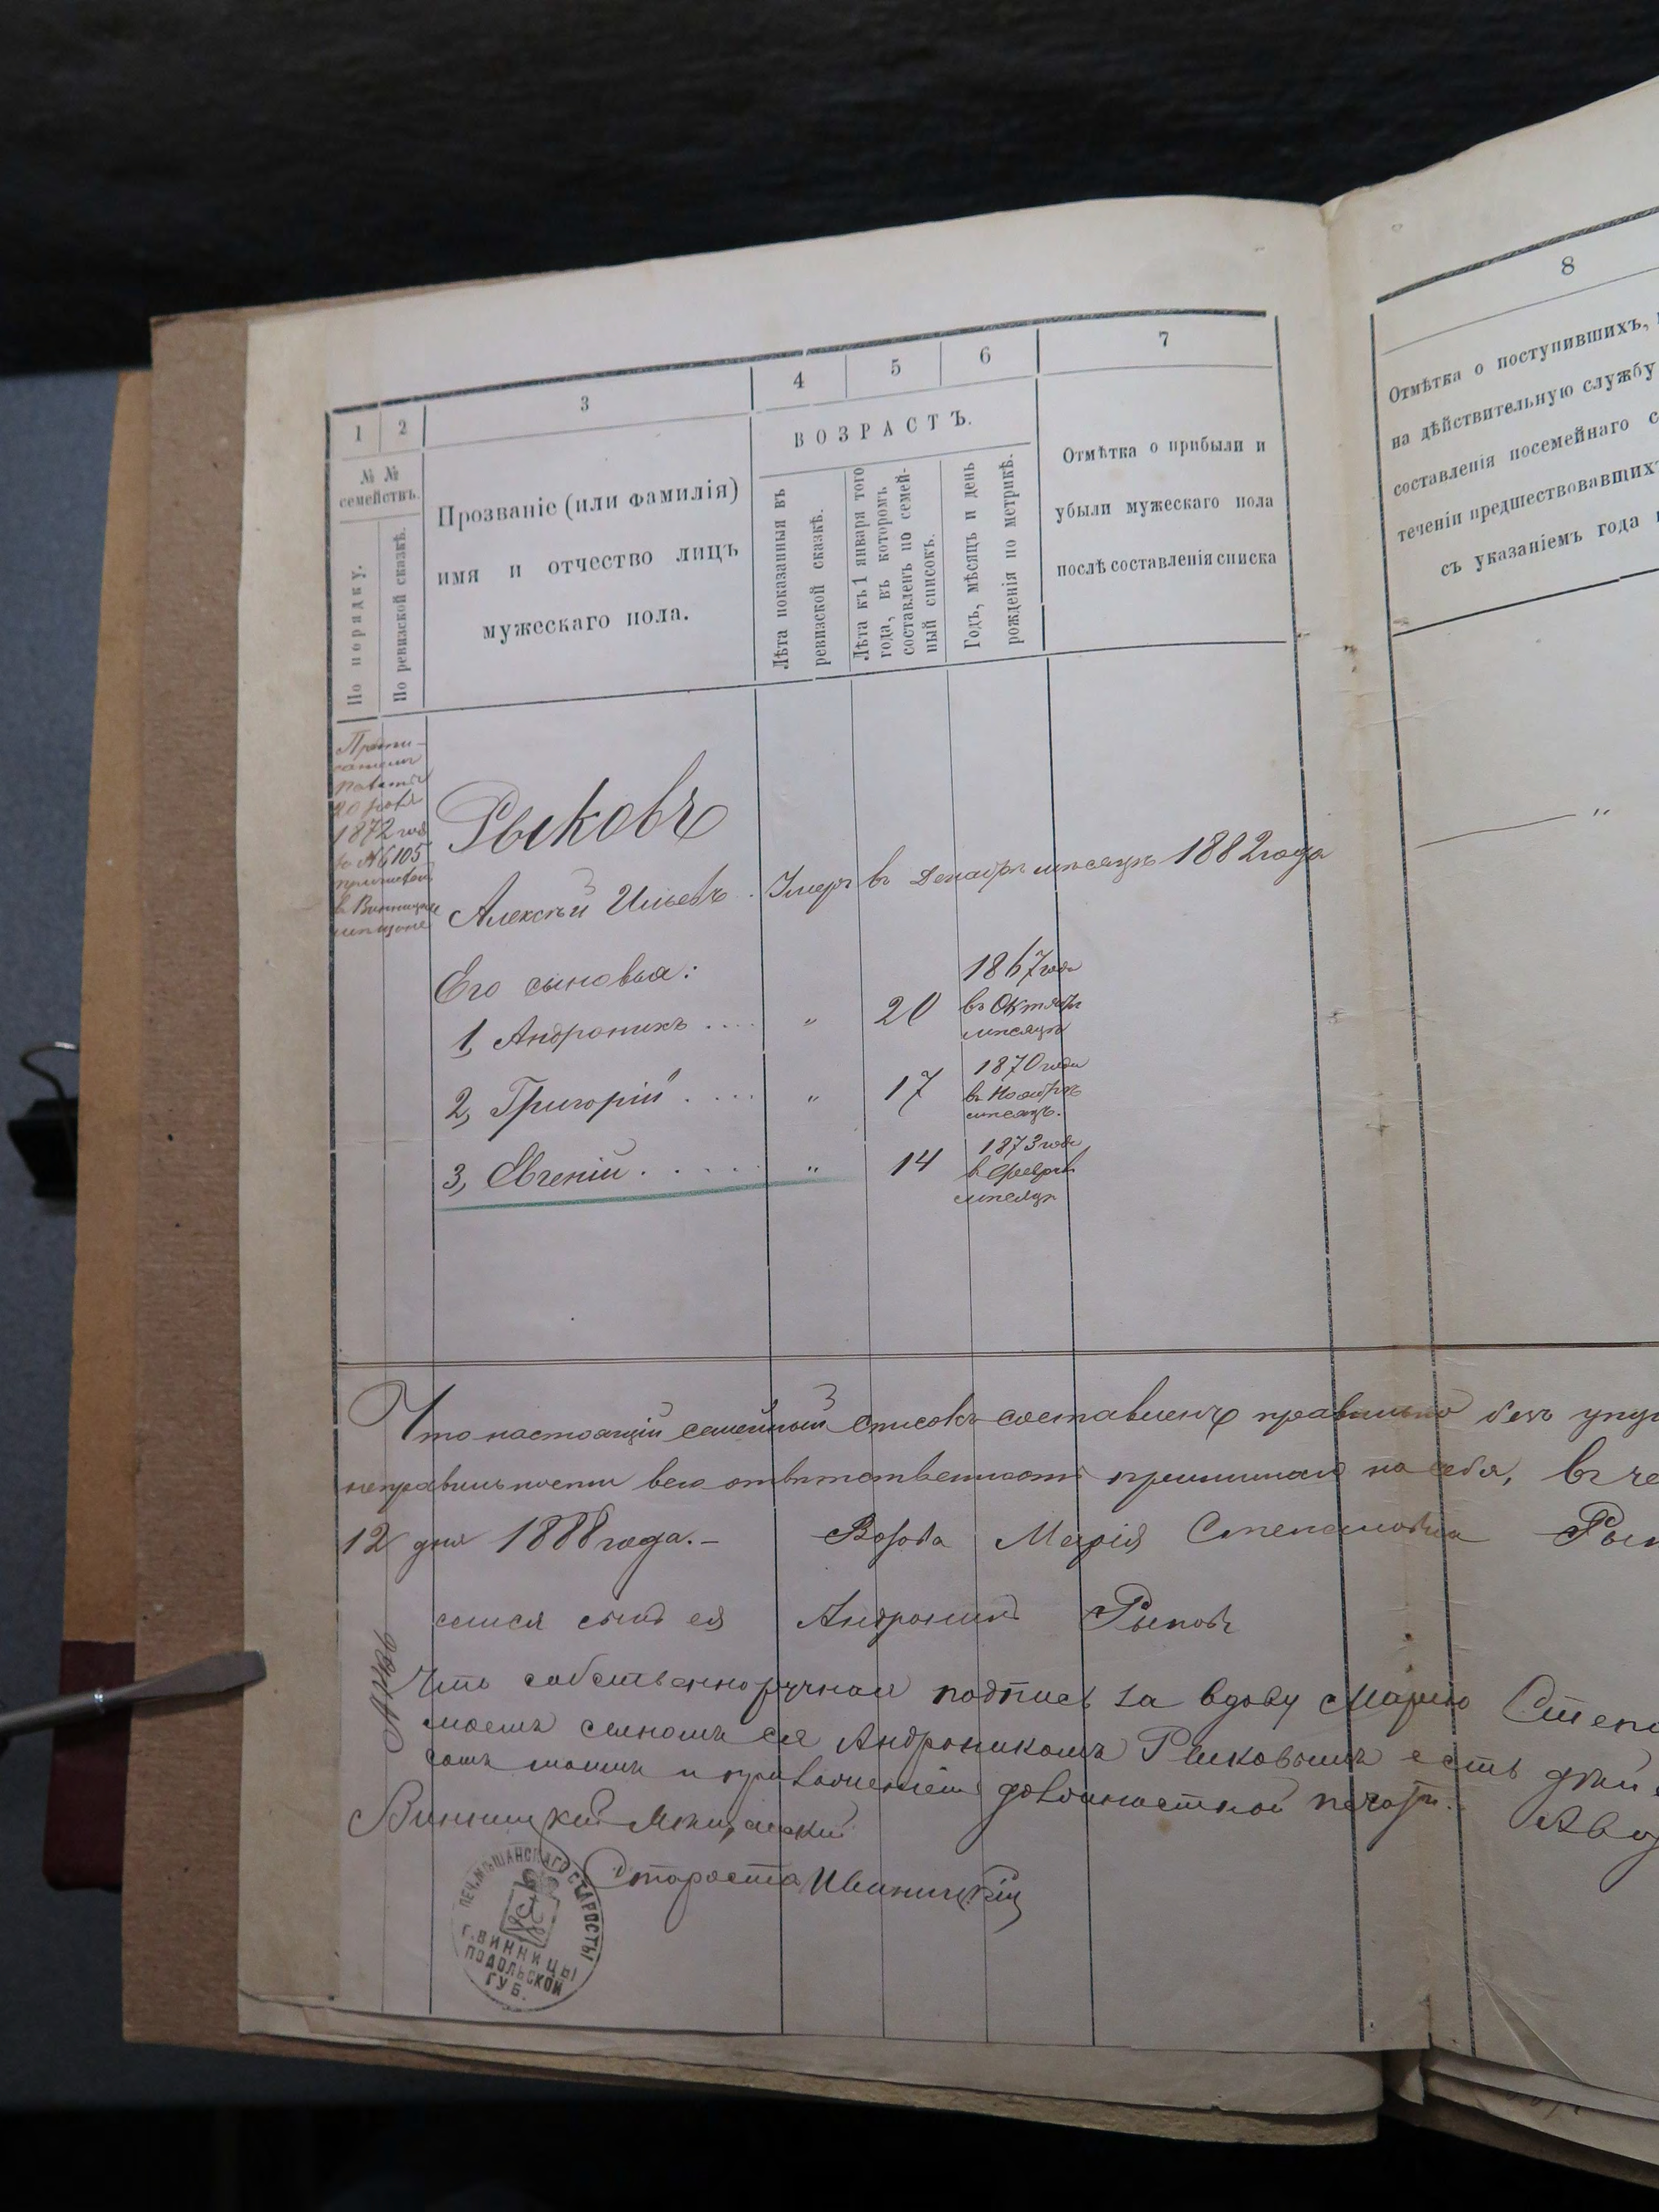 1
2
3
4
5
6
7
8
№ №
семействъ.
По порядку.
По ревизской сказкѣ.
Прозваніе (или фамилія)
имя и отчество лицъ
мужескаго пола.
ВОЗРАСТЪ.
Лѣта показанныя въ
ревизской сказкѣ.
Лѣта къ 1 января того
года, въ которомъ
составленъ по семей-
ный списокъ.
Годъ, мѣсяцъ и день
рожденія по метрикѣ.
Отмѣтка о прибыли и
убыли мужескаго пола
послѣ составленія списка
Отмѣтка о поступившихъ,
на дѣйствительную службу
составленія посемейнаго с
теченіи предшествовавшихъ
съ указаніемъ года
1872 года
№ 6105
въ Винницкие
мѣщане
Рыковъ
Алексѣй Ильевъ. Умеръ въ Декабрѣ мѣсяцѣ 1882 года
Его сыновья:
1, Андроникъ .... " 20 1867 года
въ Октябрѣ
мѣсяцѣ
2, Григорій .... " 17 1870 года
въ Ноябрѣ
мѣсяцѣ.
3, Евгеній ...... " 14 1873 года
в Феврал
мѣсяцѣ
"
Что настоящій семейный списокъ составленъ правильно безъ упу
неправильности всю отвѣтственность принимаю на себя, въ че
12 дня 1888 года.- Вдова Марія Степановна Рык
сынъ ея Андроникъ Рыковъ
Что собственноручная подпись за вдову Марию Степа
сыномъ ея Андроникомъ Рыковымъ есть дѣй
приложеніемъ должностной печати.
Винницкій Мѣщанскій
Староста Ивиницкій
ПЕЧ. МѢЩАНСКАГО СТАРОСТЫ
Г. ВИННИЦЫ
ПОДОЛЬСКОЙ
ГУБ.